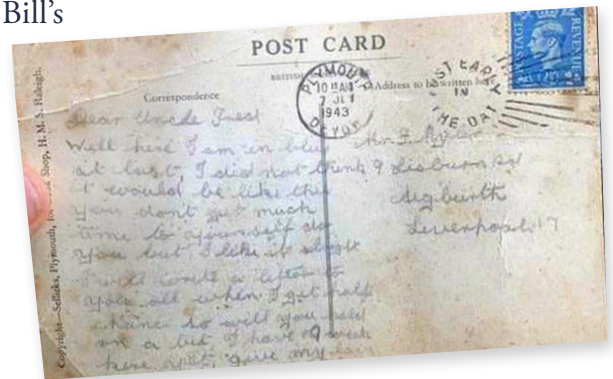 Bill's
POST CARD
BRITISH
Correspondence
Address to be written here
PLYMOUTH
10 AM
7 JLY
1943
DEVON
POST EARLY
IN
THE DAY
POSTAGE REVENUE
Copyright—Sellicks, Plymouth, Shop, H. M. S. Raleigh.
Dear Uncle Fred
Well here I am in blue
at last, I did not think
it would be like this
you dont get much
time to yourself do
you but I like it alright
I will write a letter to
you all when I get half
chance so will you hold
on a bit, I have 9 week
here yet, give my
Mr F.
9 Lisburn Rd
Aigburth
Liverpool 17